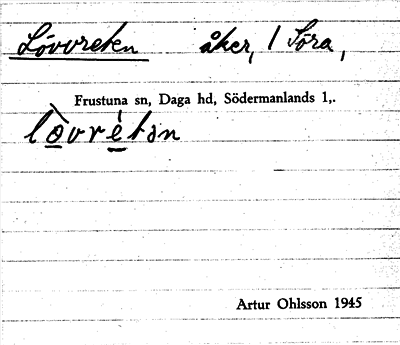 Lövvreten åker, 1 Söra,
Frustuna sn, Daga hd, Södermanlands l,.
lòvrétən
Artur Ohlsson 1945